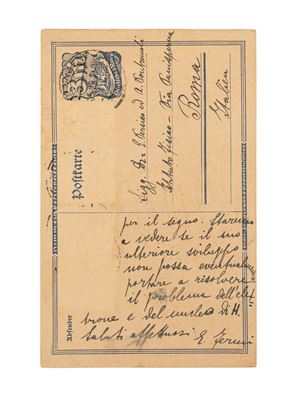 Postkarte
Sigg. Dri E. Persico ed A. Pontremoli
Istituto Fisico - Via Panisperna
Roma
Italien
Absender
per il segno. Staremo
a vedere se il suo
ulteriore sviluppo
non possa eventualmen
portare a risolvere
il problema dell'elet
trone e del nucleo di H.
Saluti affettuosi E. Fermi